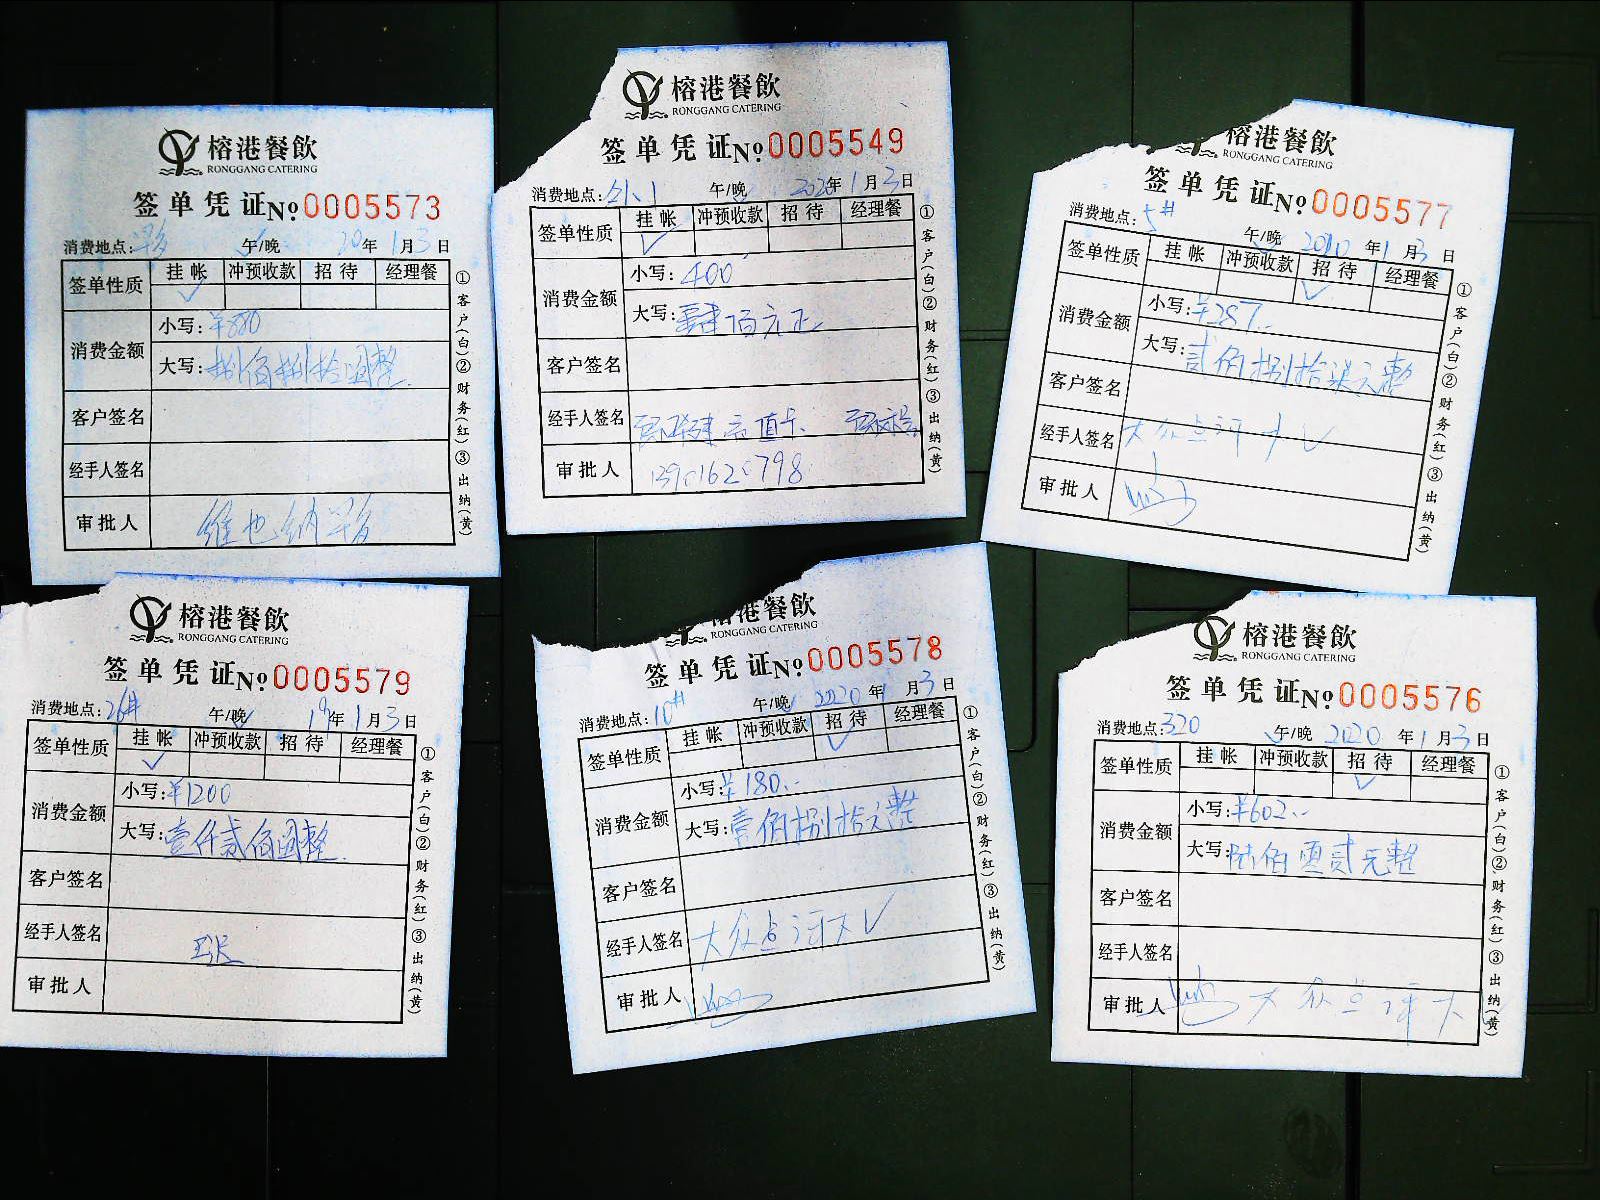 榕港餐飲
RONGGANG CATERING
签单凭证№0005573
消费地点: 午/晚 20年1月3日
签单性质 挂帐 冲预收款 招待 经理餐
✓
消费金额 小写:¥880
大写:捌佰捌拾圆整
客户签名
经手人签名
审批人 维也纳
①客户(白)②财务(红)③出纳(黄)
榕港餐飲
RONGGANG CATERING
签单凭证№0005549
消费地点: 午/晚 2020年1月3日
签单性质 挂帐 冲预收款 招待 经理餐
✓
消费金额 小写:400
大写:肆佰元正
客户签名
经手人签名
审批人
①客户(白)②财务(红)③出纳(黄)
榕港餐飲
RONGGANG CATERING
签单凭证№0005577
消费地点:5# 午/晚 2020年1月3日
签单性质 挂帐 冲预收款 招待 经理餐
✓
消费金额 小写:¥287.-
大写:贰佰捌拾柒元整
客户签名
经手人签名 大众点评卡✓
审批人
①客户(白)②财务(红)③出纳(黄)
榕港餐飲
RONGGANG CATERING
签单凭证№0005579
消费地点:26# 午/晚✓ 19年1月3日
签单性质 挂帐 冲预收款 招待 经理餐
✓
消费金额 小写:¥1200
大写:壹仟贰佰圆整
客户签名
经手人签名
审批人
①客户(白)②财务(红)③出纳(黄)
港餐飲
RONGGANG CATERING
签单凭证№0005578
消费地点:10# 午/晚✓ 2020年1月3日
签单性质 挂帐 冲预收款 招待 经理餐
✓
消费金额 小写:¥180.-
大写:壹佰捌拾元整
客户签名
经手人签名 大众点评卡✓
审批人
①客户(白)②财务(红)③出纳(黄)
榕港餐飲
RONGGANG CATERING
签单凭证№0005576
消费地点:320 午/晚 2020年1月3日
签单性质 挂帐 冲预收款 招待 经理餐
✓
消费金额 小写:¥602.-
大写:陆佰零贰元整
客户签名
经手人签名
审批人 大众点评卡
①客户(白)②财务(红)③出纳(黄)